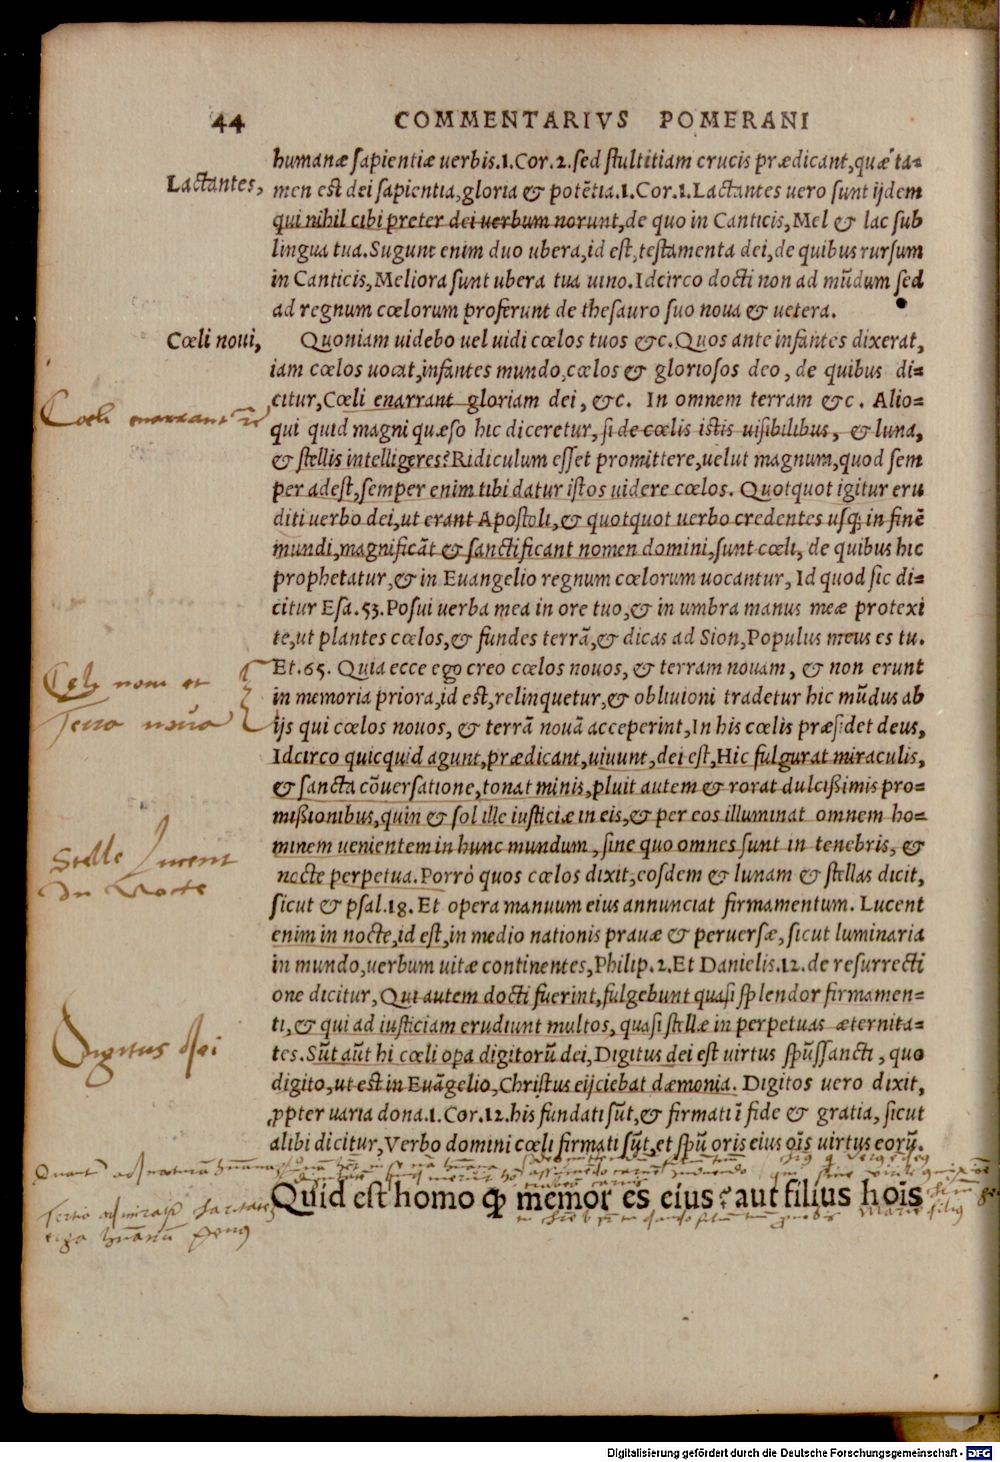 44 COMMENTARIVS POMERANI
humanæ sapientiæ uerbis.1.Cor.2.sed stultitiam crucis prædicant,quæ ta=
Lactantes,
men est dei sapientia,gloria & potẽtia.1.Cor.1.Lactantes uero sunt ijdem
qui nihil cibi preter dei uerbum norunt,de quo in Canticis,Mel & lac sub
lingua tua.Sugunt enim duo ubera,id est,testamenta dei,de quibus rursum
in Canticis,Meliora sunt ubera tua uino.Idcirco docti non ad mũdum sed
ad regnum cœlorum proferunt de thesauro suo noua & uetera.
Cœli noui,
Quoniam uidebo uel uidi cœlos tuos &c.Quos ante infantes dixerat,
iam cœlos uocat,infantes mundo,cœlos & gloriosos deo, de quibus di=
citur,Cœli enarrant gloriam dei, &c. In omnem terram &c. Alio=
Cœli enarrant
qui quid magni quæso hic diceretur, si de cœlis istis uisibilibus, & luna,
& stellis intelligeres? Ridiculum esset promittere,uelut magnum,quod sem
per adest,semper enim tibi datur istos uidere cœlos. Quotquot igitur eru
diti uerbo dei,ut erant Apostoli,& quotquot uerbo credentes usq; in finẽ
mundi,magnificãt & sanctificant nomen domini,sunt cœli, de quibus hic
prophetatur,& in Euangelio regnum cœlorum uocantur, Id quod sic di=
citur Esa.53.Posui uerba mea in ore tuo,& in umbra manus meæ protexi
te,ut plantes cœlos,& fundes terrã,& dicas ad Sion,Populus meus es tu.
Et.65. Quia ecce ego creo cœlos nouos, & terram nouam, & non erunt
Celi noui et
in memoria priora,id est,relinquetur,& obliuioni tradetur hic mũdus ab
Terra noua
ijs qui cœlos nouos, & terrã nouã acceperint,In his cœlis præsidet deus,
Idcirco quicquid agunt,prædicant,uiuunt,dei est,Hic fulgurat miraculis,
& sancta cõuersatione,tonat minis,pluit autem & rorat dulcißimis pro=
mißionibus,quin & sol ille iusticiæ in eis,& per eos illuminat omnem ho=
minem uenientem in hunc mundum, sine quo omnes sunt in tenebris, &
Stelle lucent
nocte perpetua.Porrò quos cœlos dixit,eosdem & lunam & stellas dicit,
In Nocte
sicut & psal.18. Et opera manuum eius annunciat firmamentum. Lucent
enim in nocte,id est,in medio nationis prauæ & peruersæ, sicut luminaria
in mundo,uerbum uitæ continentes,Philip.2.Et Danielis.12. de resurrecti
one dicitur, Qui autem docti fuerint,fulgebunt quasi splendor firmamen=
ti,& qui ad iusticiam erudiunt multos, quasi stellæ in perpetuas æternita=
Digitus Dei
tes.Sũt aũt hi cœli opa digitorũ dei,Digitus dei est uirtus spũssancti, quo
digito,ut est in Euãgelio,Christus eijciebat dæmonia. Digitos uero dixit,
ꝓpter uaria dona.1.Cor.12.his fundati sũt,& firmati ĩ fide & gratia, sicut
alibi dicitur,Verbo domini cœli firmati sũt,et spũ oris eius oĩs uirtus eorũ.
Quid est homo ꝙ memor es eius? aut filius hoĩs
Digitalisierung gefördert durch die Deutsche Forschungsgemeinschaft - DFG